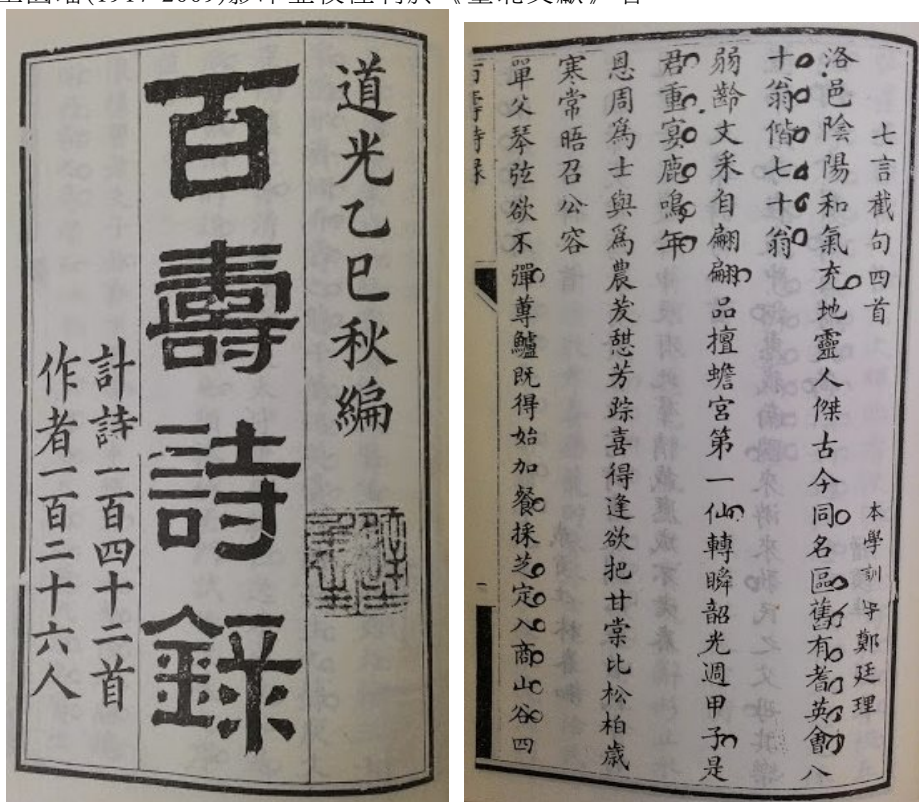 王國璠(1917-2009)影印並刊於《臺北文獻》者
道光乙巳秋編
百壽詩錄
計詩一百四十二首
作者一百二十六人
七言截句四首 本學訓導鄭廷理
洛邑陰陽和氣充地靈人傑古今同名區舊有耆英會八
十翁偕七十翁
弱齡文釆自翩翩品擅蟾宮第一仙轉瞬韶光週甲子是
君重宴鹿鳴年
恩周爲士與爲農茇憇芳踪喜得逢欲把甘棠比松柏歲
寒常晤召公容
單父琴弦欲不彈蓴鱸既得始加餐採芝定入商山谷四
百壽詩錄